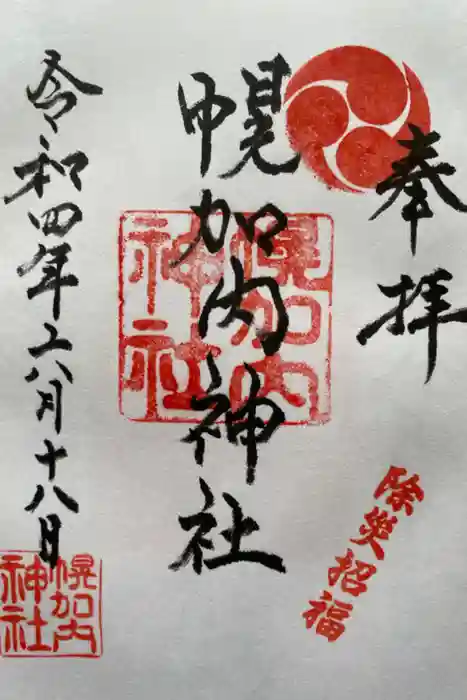 奉拝
幌加内神社
幌加内神社
除災招福
令和四年六月十八日
幌加内神社